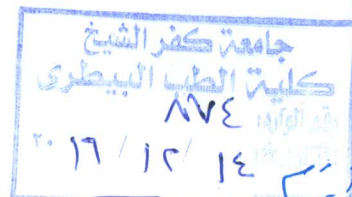 جامعة كفر الشيخ
كلية الطب البيطرى
رقم الوارد: ٨٧٤
١٤ / ١٢ / ٢٠١٦